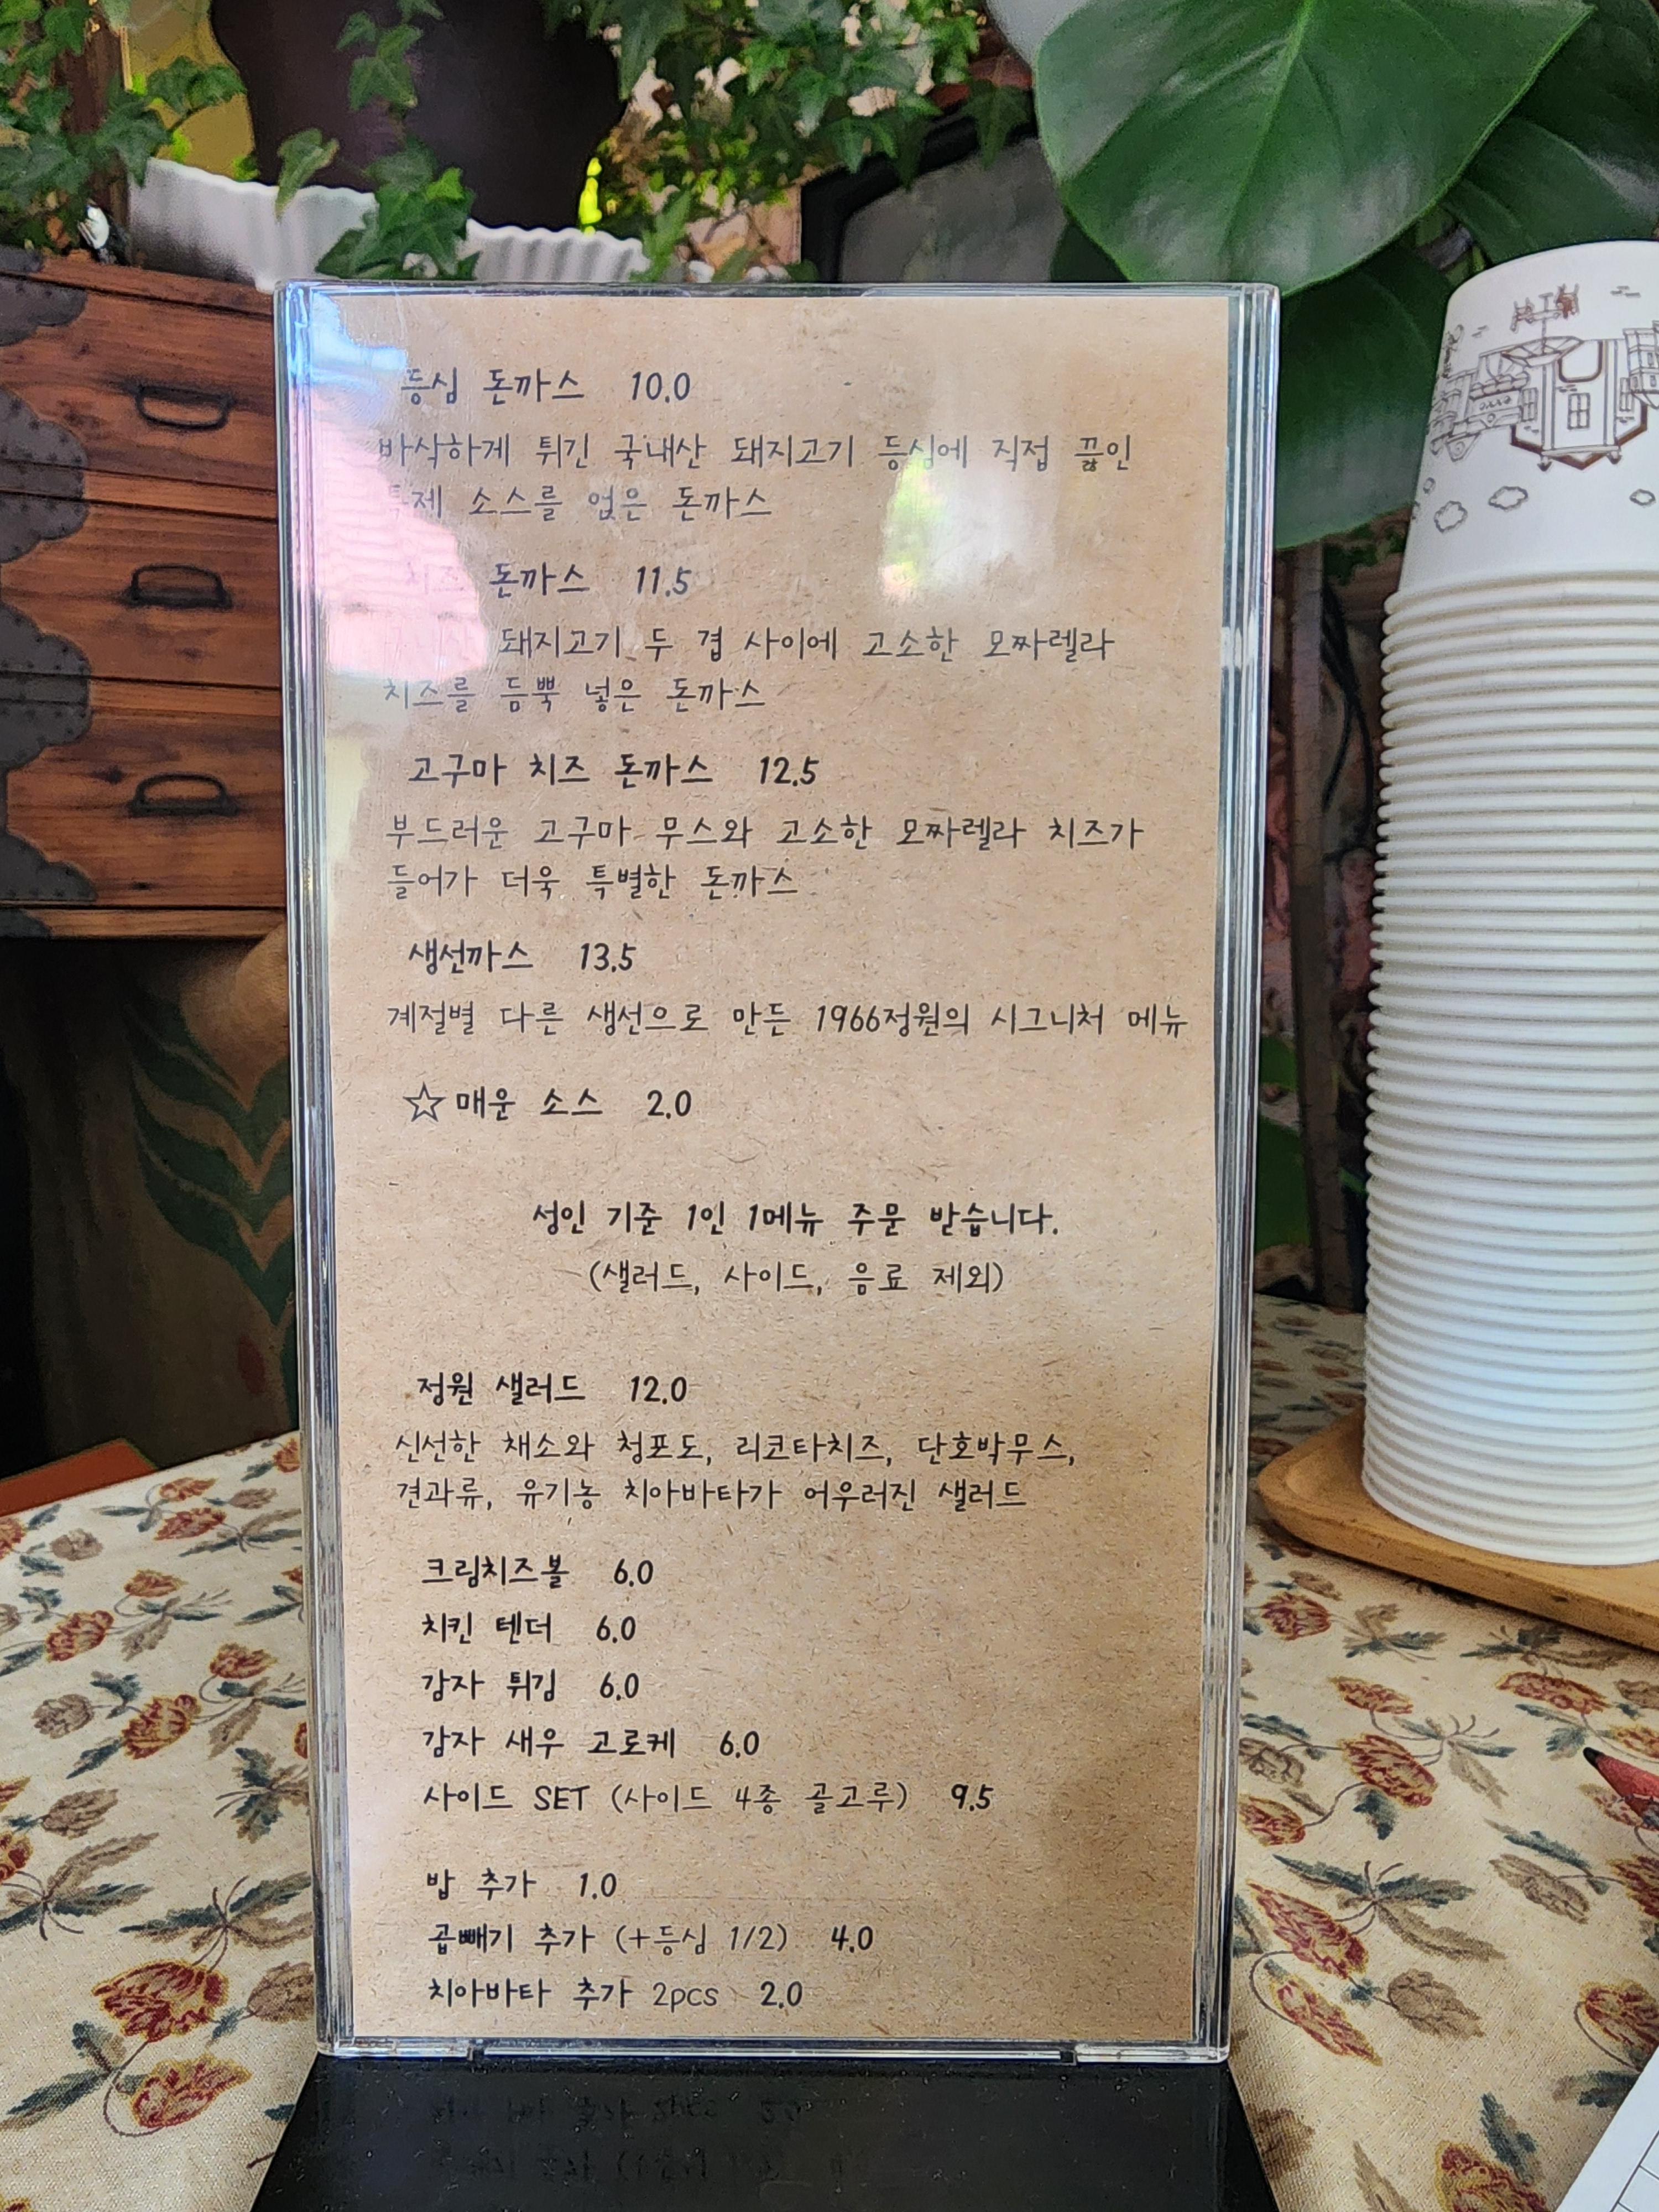 등심 돈까스 10.0
바삭하게 튀긴 국내산 돼지고기 등심에 직접 끓인
특제 소스를 얹은 돈까스
치즈 돈까스 11.5
국내산 돼지고기 두 겹 사이에 고소한 모짜렐라
치즈를 듬뿍 넣은 돈까스
고구마 치즈 돈까스 12.5
부드러운 고구마 무스와 고소한 모짜렐라 치즈가
들어가 더욱 특별한 돈까스
생선까스 13.5
계절별 다른 생선으로 만든 1966정원의 시그니처 메뉴
☆매운 소스 2.0
성인 기준 1인 1메뉴 주문 받습니다.
(샐러드, 사이드, 음료 제외)
정원 샐러드 12.0
신선한 채소와 청포도, 리코타치즈, 단호박무스,
견과류, 유기농 치아바타가 어우러진 샐러드
크림치즈볼 6.0
치킨 텐더 6.0
감자 튀김 6.0
감자 새우 고로케 6.0
사이드 SET (사이드 4종 골고루) 9.5
밥 추가 1.0
곱빼기 추가 (+등심 1/2) 4.0
치아바타 추가 2pcs 2.0